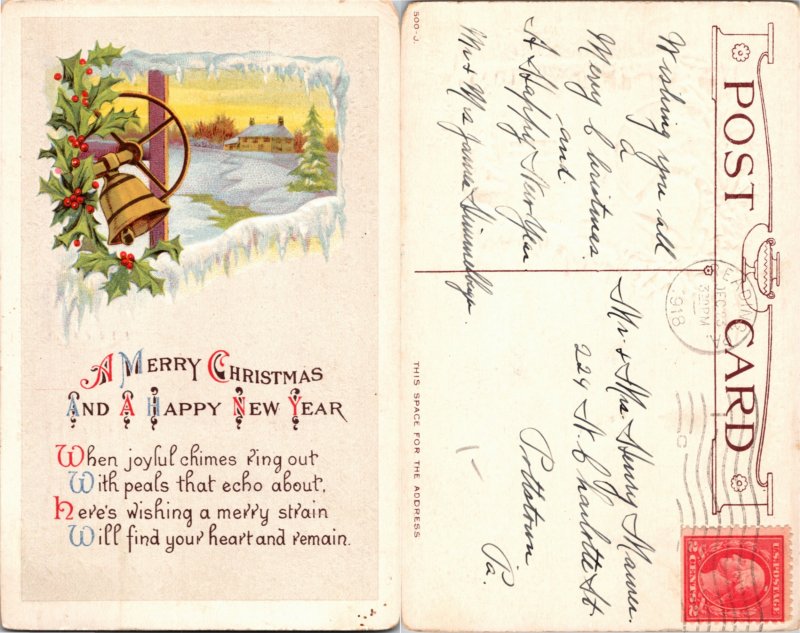 A MERRY CHRISTMAS
AND A HAPPY NEW YEAR
When joyful chimes ring out
With peals that echo about,
Here's wishing a merry strain
Will find your heart and remain.
500-J.
POST CARD
Wishing you all
a
Merry Christmas
and
A Happy New Year
Mr & Mrs James
THIS SPACE FOR THE ADDRESS
Mr & Mrs. Henry Maurer.
224 N. Charlotte St
Pottstown
Pa.
READING
DEC
330 PM
1918
U.S. POSTAGE
2 CENTS 2